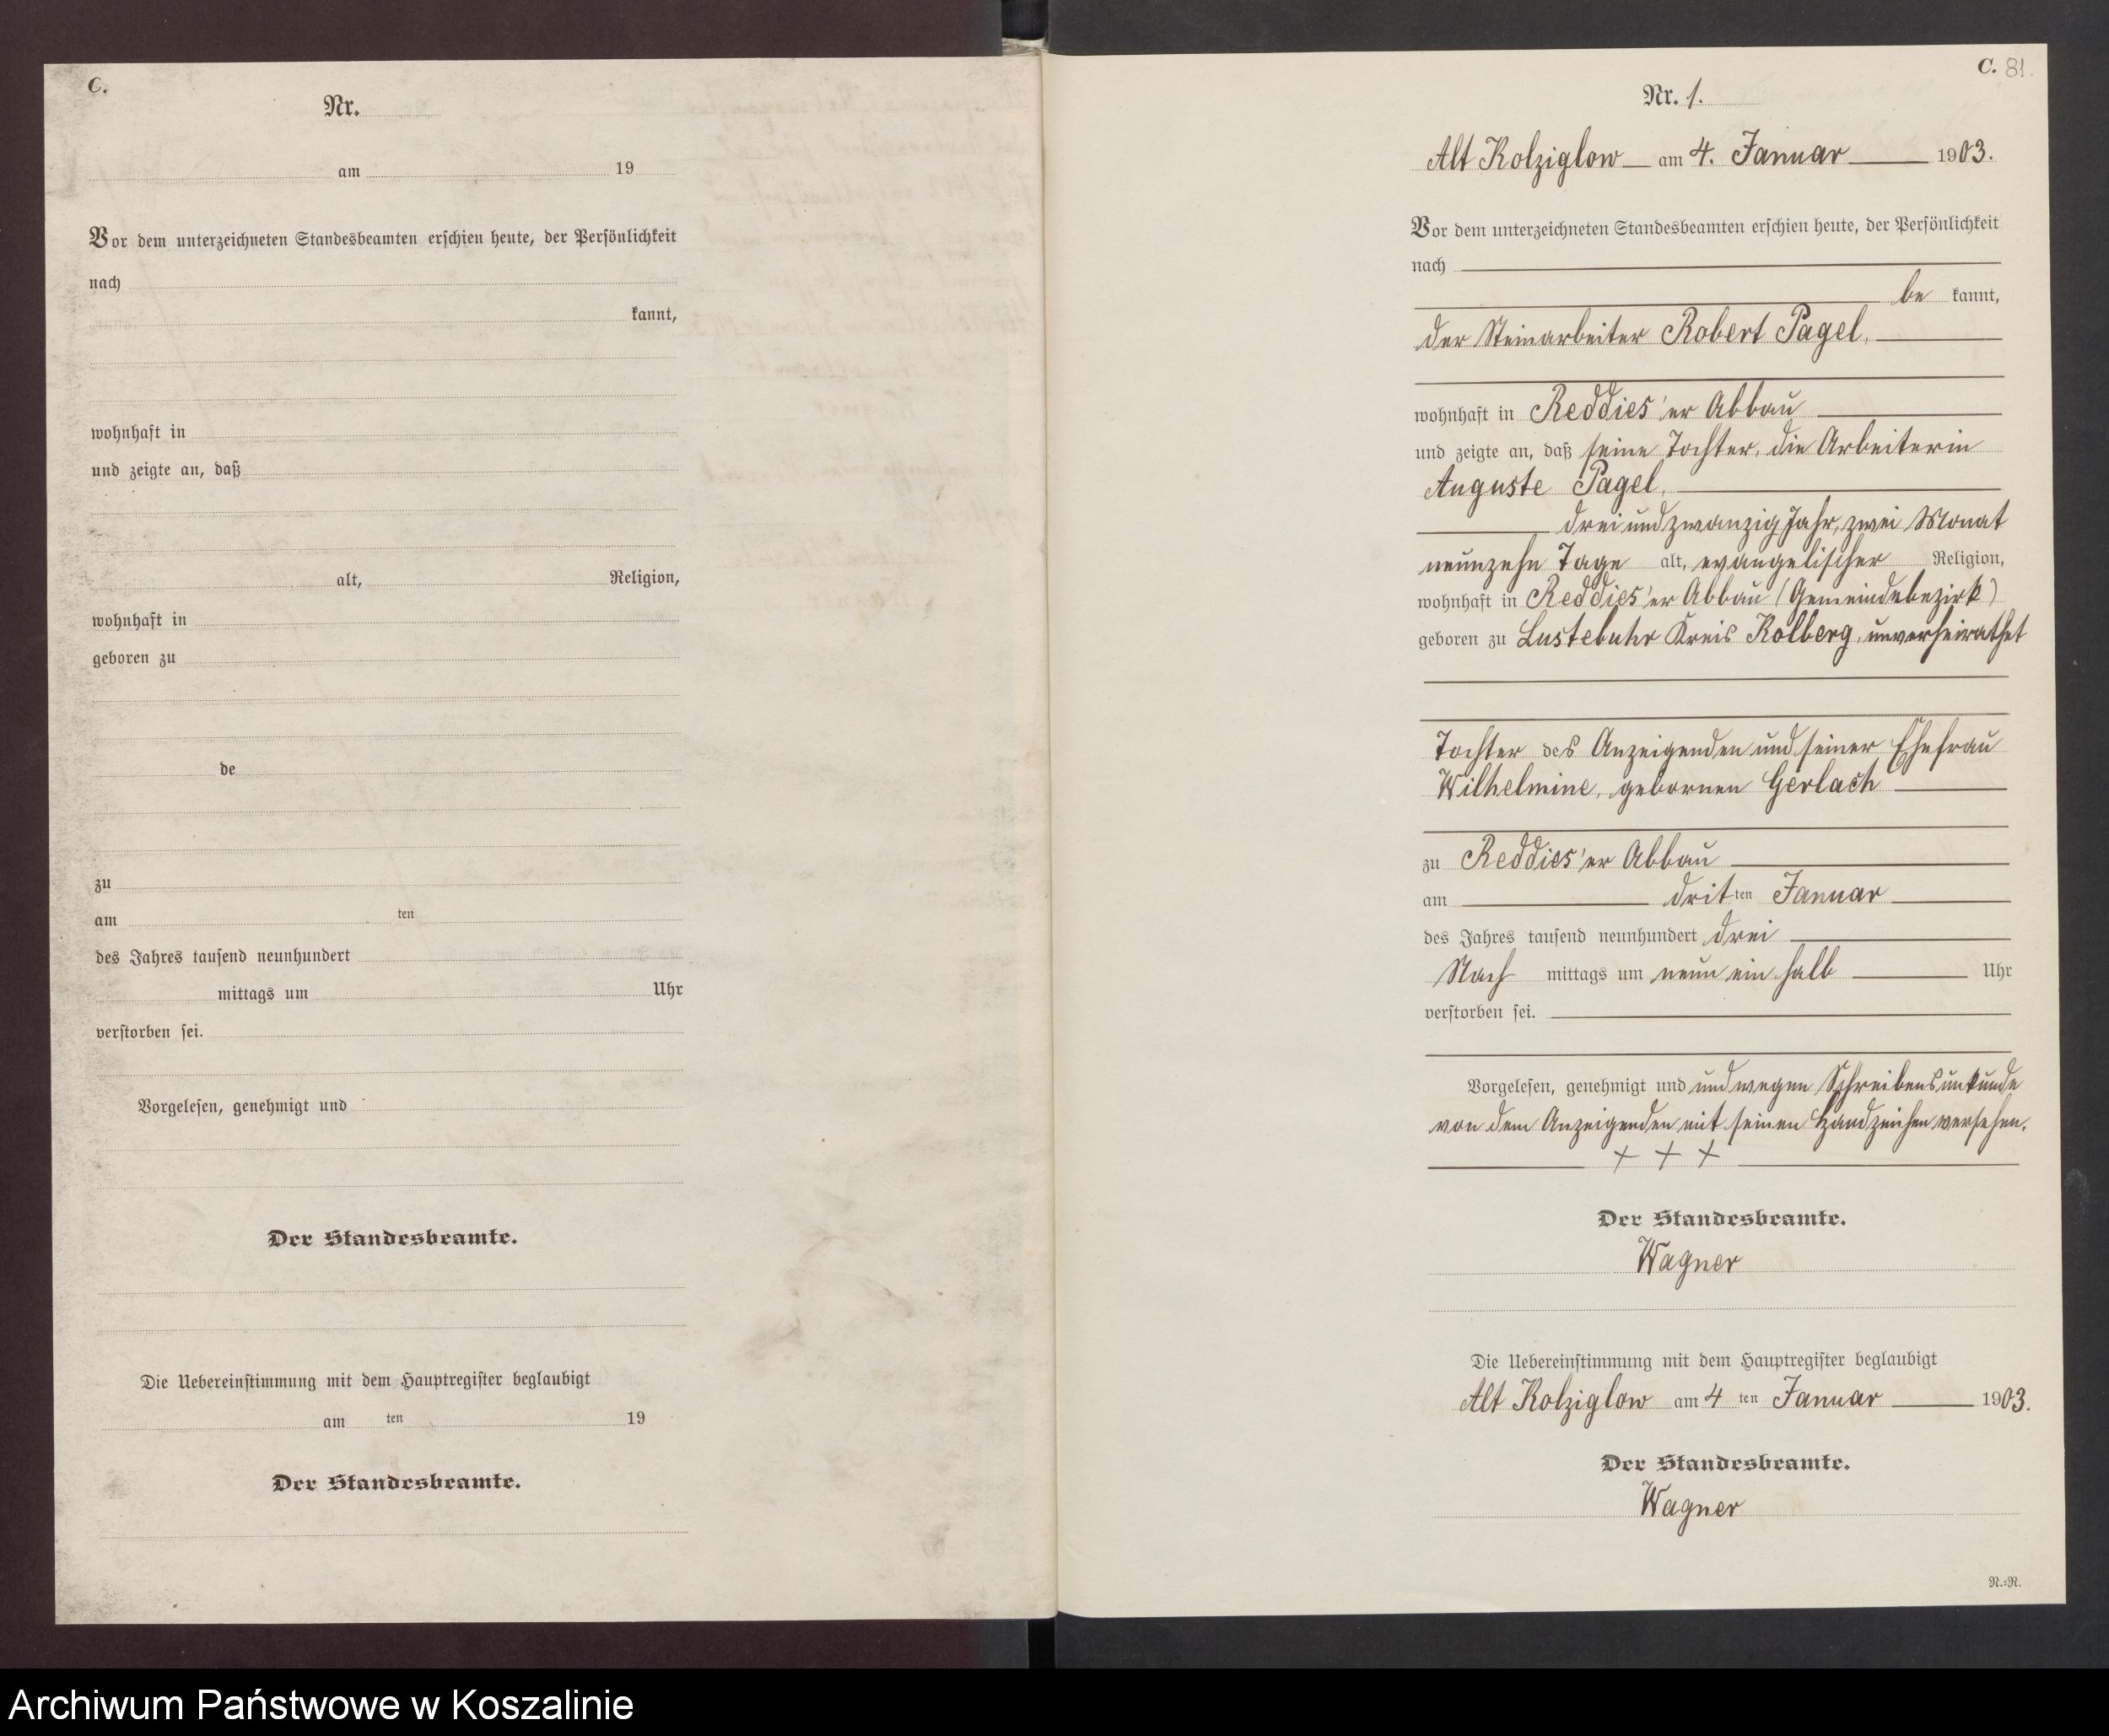 C.
Nr.
am 19
Vor dem unterzeichneten Standesbeamten erschien heute, der Persönlichkeit
nach
kannt,
wohnhaft in
und zeigte an, daß
alt, Religion,
wohnhaft in
geboren zu
de
zu
am ten
des Jahres tausend neunhundert
mittags um Uhr
verstorben sei.
Vorgelesen, genehmigt und
Der Standesbeamte.
Die Uebereinstimmung mit dem Hauptregister beglaubigt
am ten 19
Der Standesbeamte.
C. 81.
Nr. 1.
Alt Kolziglow am 4. Januar 1903.
Vor dem unterzeichneten Standesbeamten erschien heute, der Persönlichkeit
nach
be kannt,
der Steinarbeiter Robert Pagel,
wohnhaft in Reddies'er Abbau
und zeigte an, daß seine Tochter, die Arbeiterin
Auguste Pagel,
drei und zwanzig Jahr, zwei Monat
neunzehn Tage alt, evangelischer Religion,
wohnhaft in Reddies'er Abbau (Gemeindebezirk)
geboren zu Lustebuhr Kreis Kolberg, unverheirathet
Tochter des Anzeigenden und seiner Ehefrau
Wilhelmine, gebornen Gerlach
zu Reddies'er Abbau
am drit ten Januar
des Jahres tausend neunhundert drei
Nach mittags um neun ein halb Uhr
verstorben sei.
Vorgelesen, genehmigt und und wegen Schreibensunkunde
von dem Anzeigenden mit seinen Handzeichen versehen.
+ + +
Der Standesbeamte.
Wagner
Die Uebereinstimmung mit dem Hauptregister beglaubigt
Alt Kolziglow am 4 ten Januar 1903.
Der Standesbeamte.
Wagner
N.=N.
Archiwum Państwowe w Koszalinie